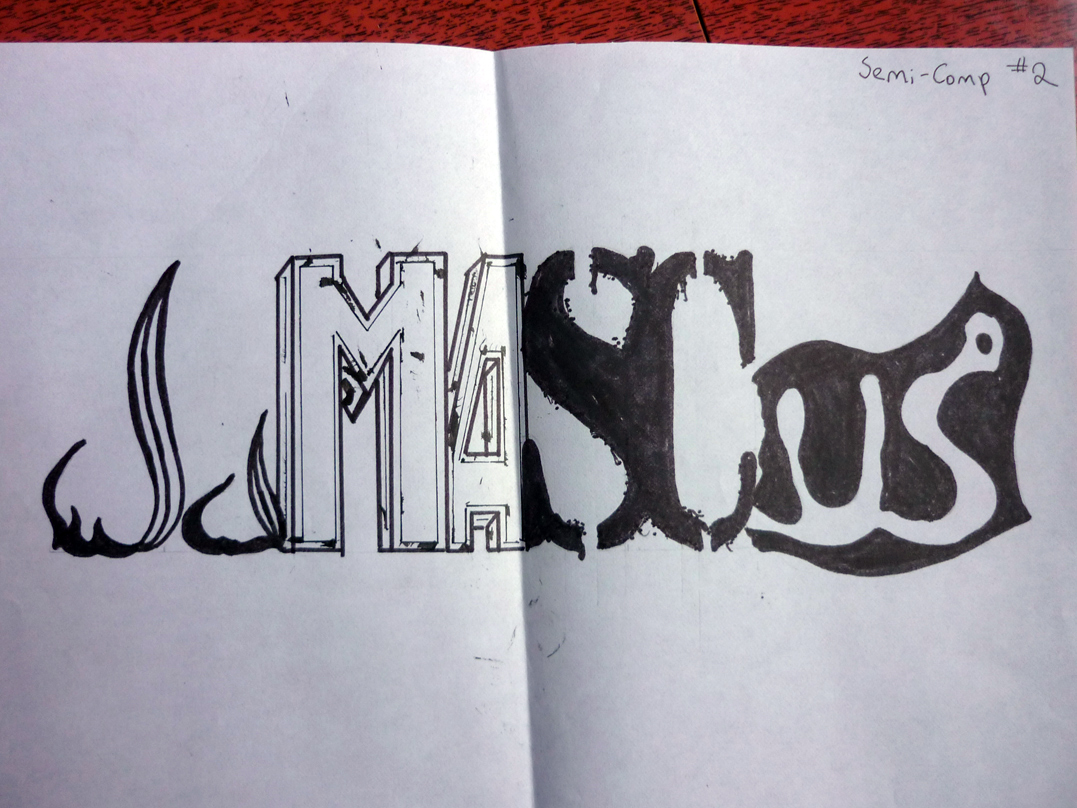 Semi-Comp #2
JJMASCus